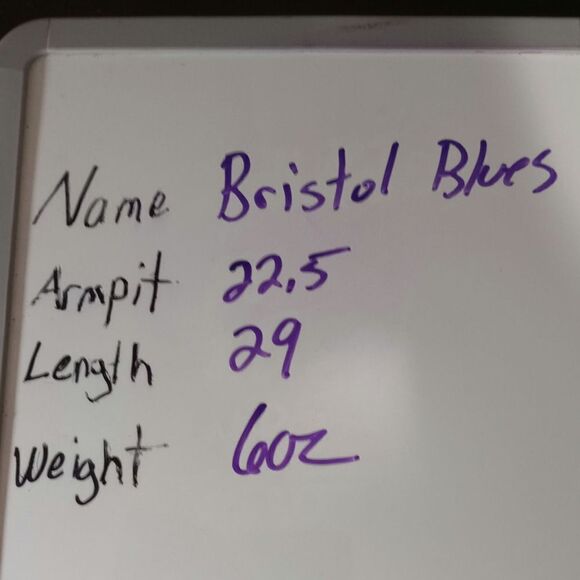 Name Bristol Blues
Armpit 22.5
Length 29
Weight 6oz